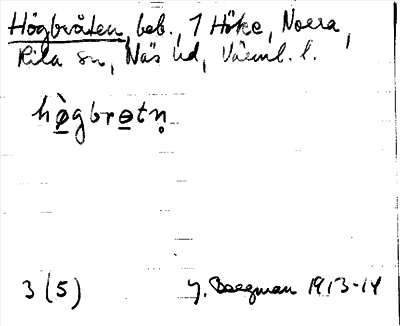 Högbråten, beb., 1 Höke, Norra,
Rila sn, Näs hd, Värml. l.
hø̀gbrɵtn̥
3 (5) J. Bergman 1913-14